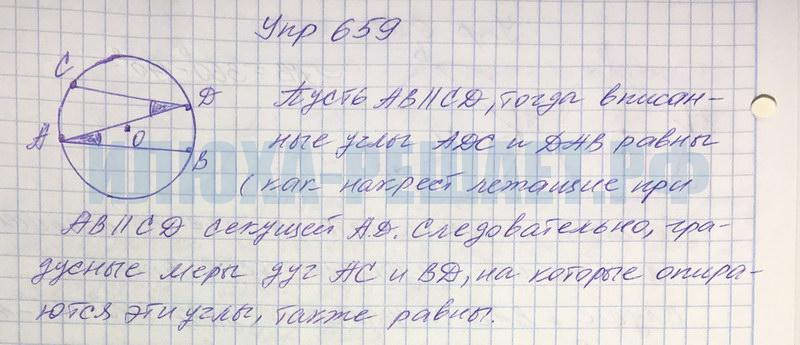 Упр 659
C
D
A
O
B
Пусть AB||CD, тогда вписан-
ные углы ADC и DAB равны
(как накрест лежащие при
AB||CD секущей A.D. Следовательно, гра-
дусные меры дуг AC и BD, на которые опира-
ются эти углы, также равны.
ИЛЮХА-РЕШАЛ.РФ